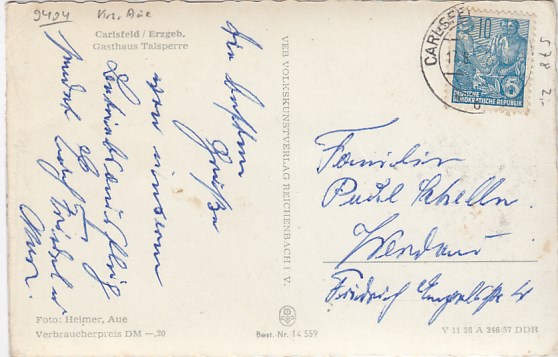 9494 Krs. Aue
Carlsfeld / Erzgeb.
Gasthaus Talsperre
Die besten
Grüße
von unserem
Betriebsausflug
sendet Euch
Foto: Heimer, Aue
Verbraucherpreis DM —,20
VEB VOLKSKUNSTVERLAG REICHENBACH I. V.
Best.-Nr. 14 559
CARLSFE
10
5
DEUTSCHE
DEMOKRATISCHE REPUBLIK
578
Familie
Paul Schelln
Werdau
Friedrich Engelsstr
V 11 28 A 246/57 DDR